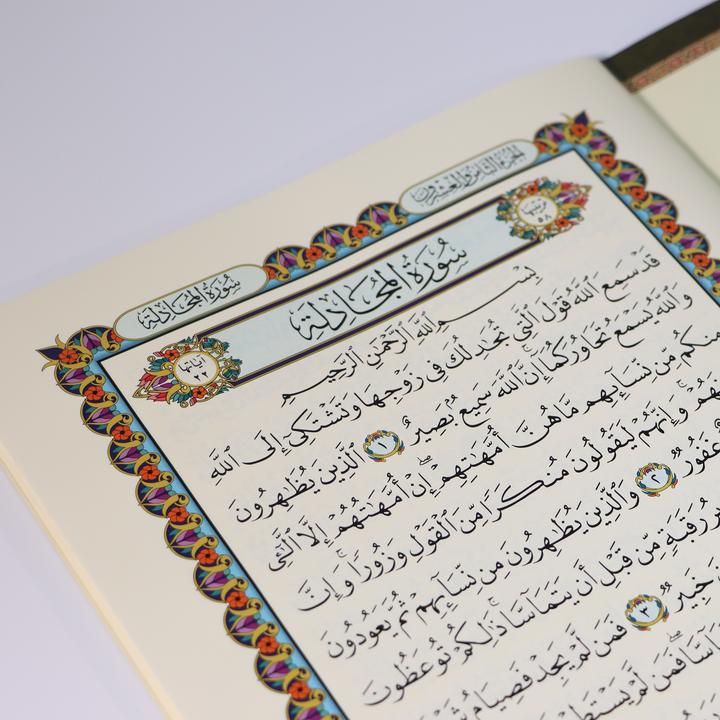 الجزء الثامن والعشرون
سورة المجادلة
ترتيبها
٥٨
سُورَةُ المُجَادِلَةِ
آياتها
٢٢
بِسْمِ ٱللَّهِ ٱلرَّحْمَٰنِ ٱلرَّحِيمِ
قَدْ سَمِعَ ٱللَّهُ قَوْلَ ٱلَّتِي تُجَٰدِلُكَ فِي زَوْجِهَا وَتَشْتَكِيٓ إِلَى ٱللَّهِ
وَٱللَّهُ يَسْمَعُ تَحَاوُرَكُمَآ إِنَّ ٱللَّهَ سَمِيعٌۢ بَصِيرٌ ١ ٱلَّذِينَ يُظَٰهِرُونَ
مِنكُم مِّن نِّسَآئِهِم مَّا هُنَّ أُمَّهَٰتِهِمْ ۖ إِنْ أُمَّهَٰتُهُمْ إِلَّا ٱلَّٰٓـِٔي
وَإِنَّهُمْ لَيَقُولُونَ مُنكَرًا مِّنَ ٱلْقَوْلِ وَزُورًا ۚ وَإِنَّ
غَفُورٌ ٢ وَٱلَّذِينَ يُظَٰهِرُونَ مِن نِّسَآئِهِمْ ثُمَّ يَعُودُونَ
رَقَبَةٍ مِّن قَبْلِ أَن يَتَمَآسَّا ۚ ذَٰلِكُمْ تُوعَظُونَ
خَبِيرٌ ٣ فَمَن لَّمْ يَجِدْ فَصِيَامُ
فَمَن لَّمْ يَسْتَطِعْ